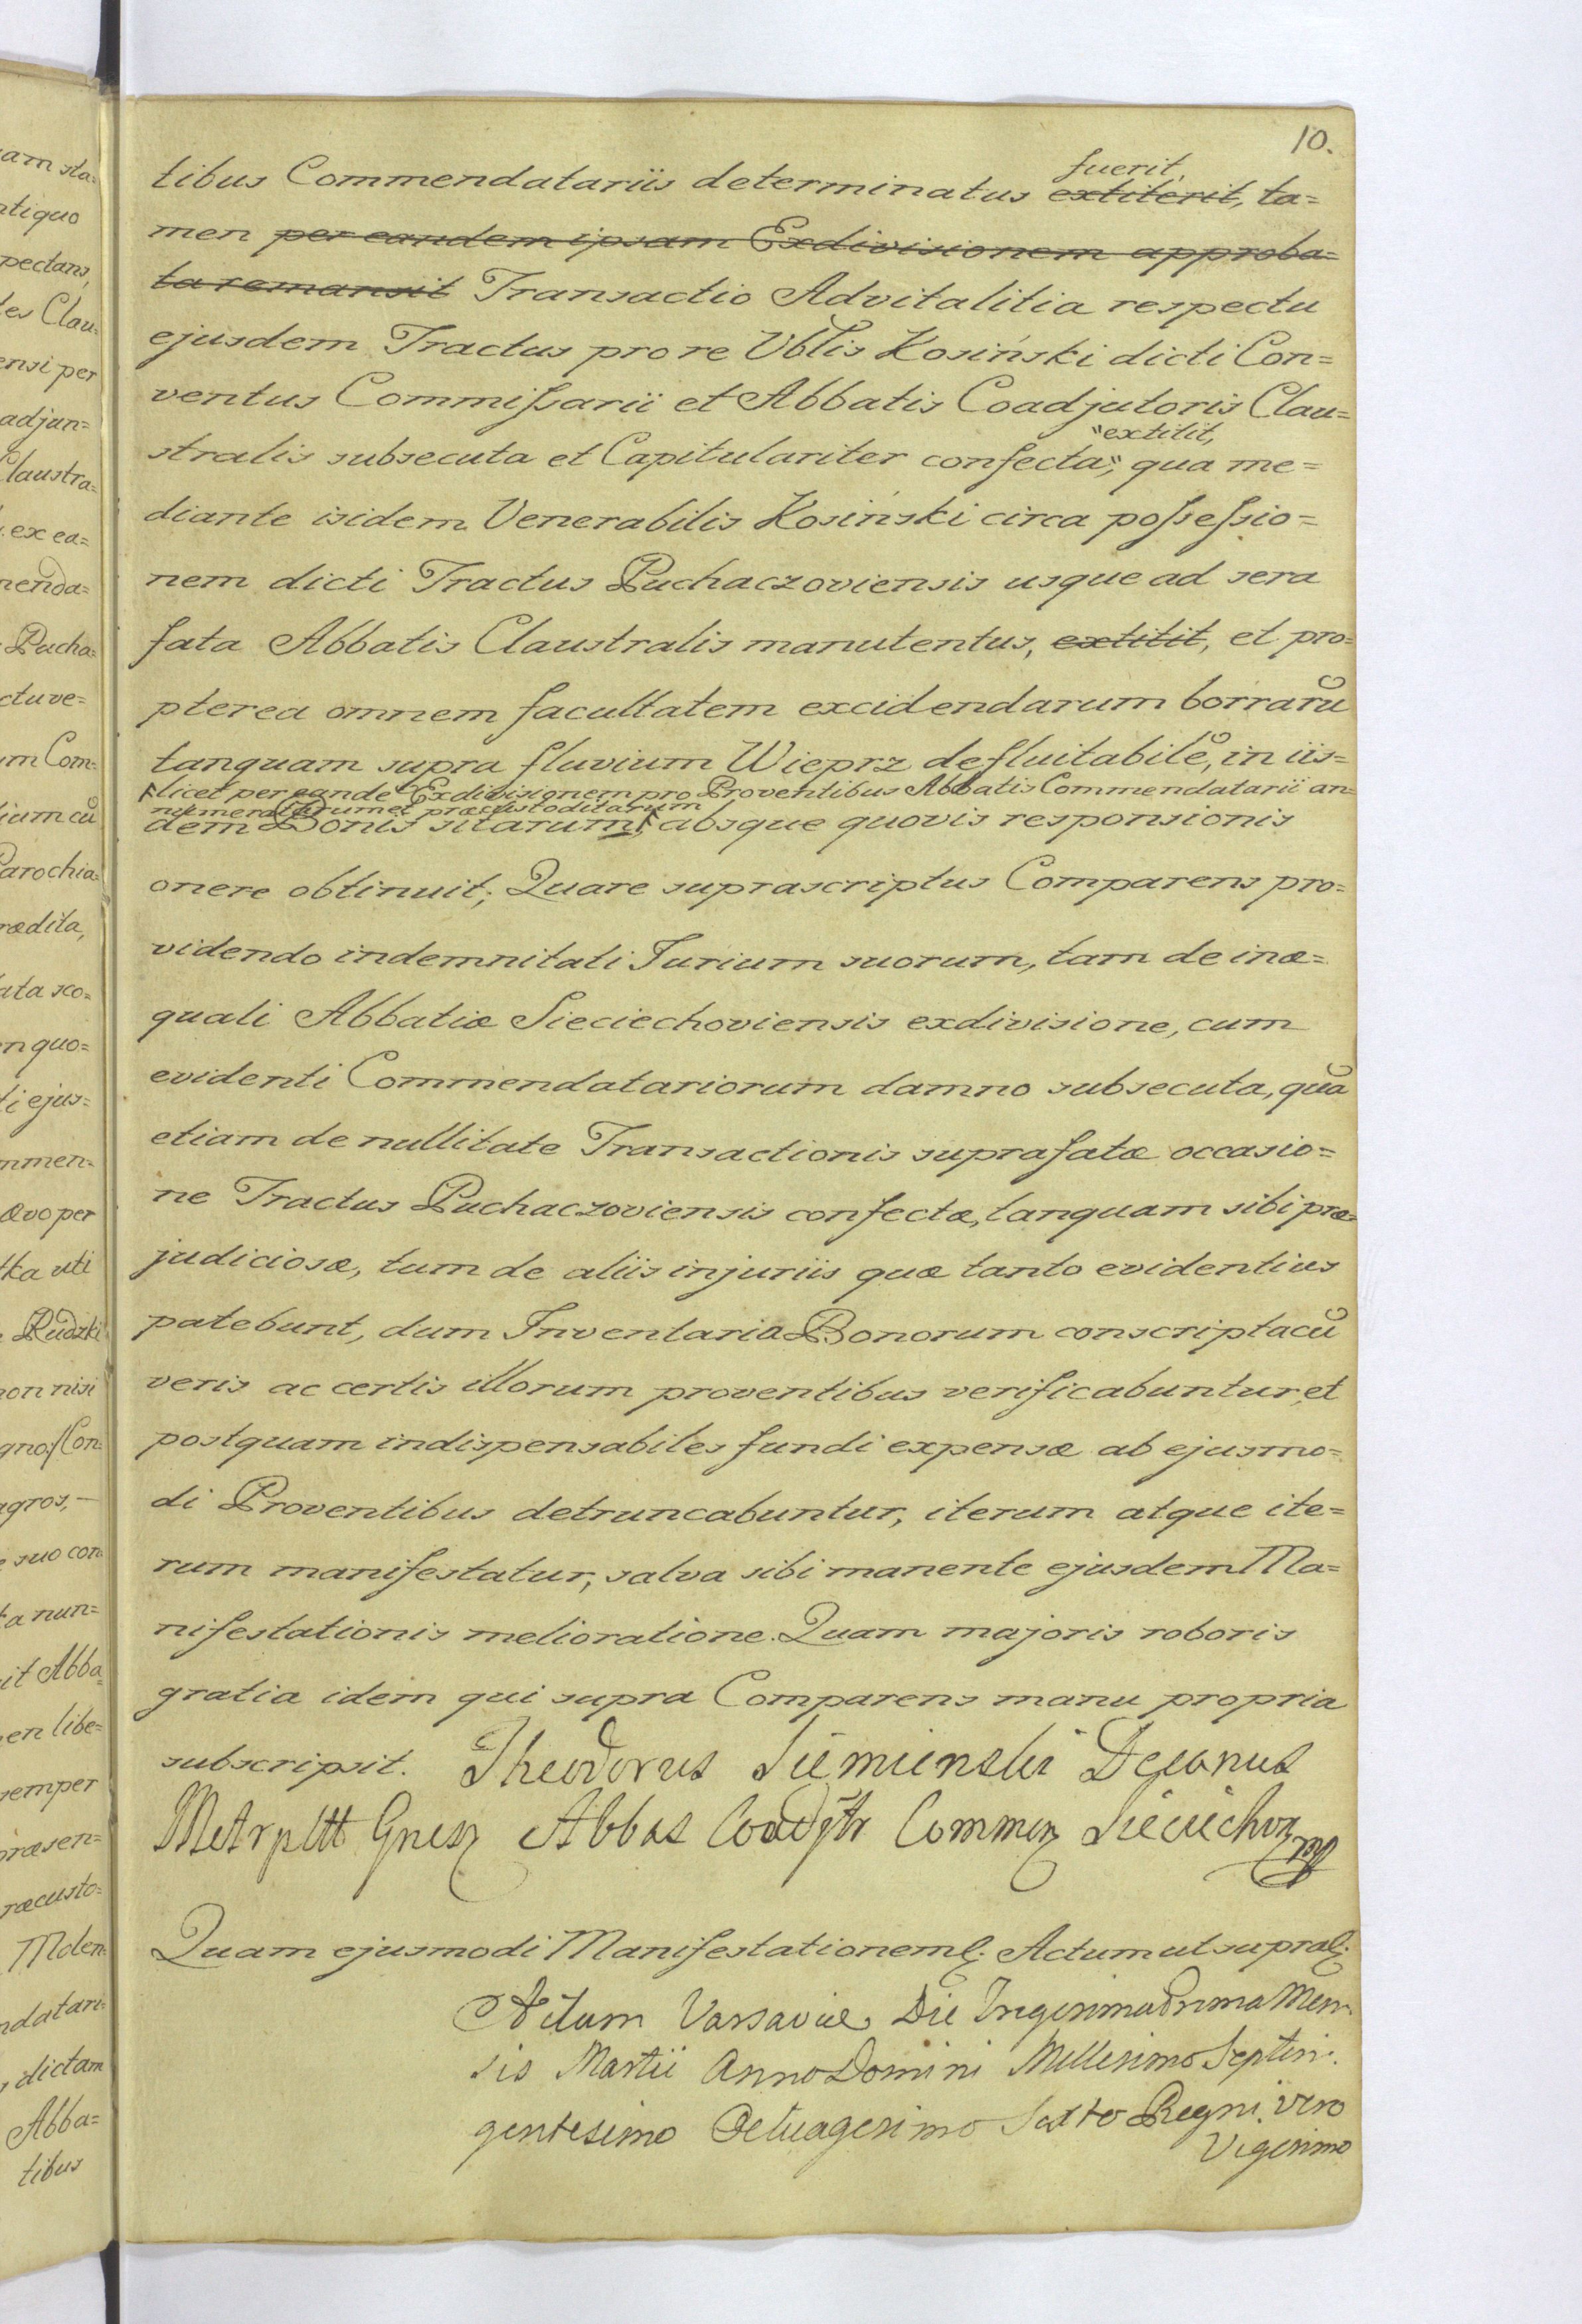 10.
fuerit,
tibus Commendatariis determinatus extiterit, ta=
men per eandem ipsam Exdivisionem approba=
ta remansit Transactio Advitalitia respectu
ejusdem Tractus pro re Vblis Kosiński dicti Con=
ventus Commissarii et Abbatis Coadjutoris Clau=
"extitit,
stralis subsecuta et Capitulariter confecta", qua me=
diante isidem Venerabilis Kosiński circa possessio=
nem dicti Tractus Puchaczoviensis usque ad sera
fata Abbatis Claustralis manutentus, extitit, et pro=
pterea omnem facultatem excidendarum borrarũ
tanquam supra fluvium Wieprz defluitabilẽ, in iis=
licet per eandẽ Exdivisionem pro Proventibus Abbatis Commendatarii an=
numeratarum et præcustoditarum
dem Bonis sitarum, absque quovis responsionis
onere obtinuit; Quare suprascriptus Comparens pro=
videndo indemnitati Jurium suorum, tam de inæ=
quali Abbatiæ Sieciechoviensis exdivisione, cum
evidenti Commendatariorum damno subsecuta, quã
etiam de nullitate Transactionis suprafatæ occasio=
ne Tractus Puchaczoviensis confectæ, tanquam sibi præ=
judiciosæ, tum de aliis injuriis quæ tanto evidentius
patebunt, dum Inventaria Bonorum conscripta cũ
veris ac certis illorum proventibus verificabuntur, et
postquam indispensabiles fundi expensæ ab ejusmo=
di Proventibus detruncabuntur, iterum atque ite=
rum manifestatur, salva sibi manente ejusdem Ma=
nifestationis melioratione. Quam majoris roboris
gratia idem qui supra Comparens manu propria
subscripsit. Theodorus Siemienski Decanus
Metrpltt Gnesz Abbas Coadjtr Commen Sieciechov mp
Quam ejusmodi Manifestationem &. Actum ut supra &.
Actum Varsaviæ Die Trigesima Prima Men=
sis Martii Anno Domini Millesimo Septin=
gentesimo Octuagesimo Sexto Regni vero
Vigesimo
am sta=
ntiquo
pectans,
les Clau=
ensi per
adjun=
Claustra=
ex ea=
menda=
Pucha=
ctu ve=
um Com=
Parochia=
rædita,
ata sco=
n quo=
ti ejus=
mmen=
ævo per
tka uti
Rudzki
non nisi
agros, —
e suo con
ta nun=
it Abba=
en libe=
semper
præsen=
ræcusto=
Molen=
ndatari=
dictam
Abba=
tibus